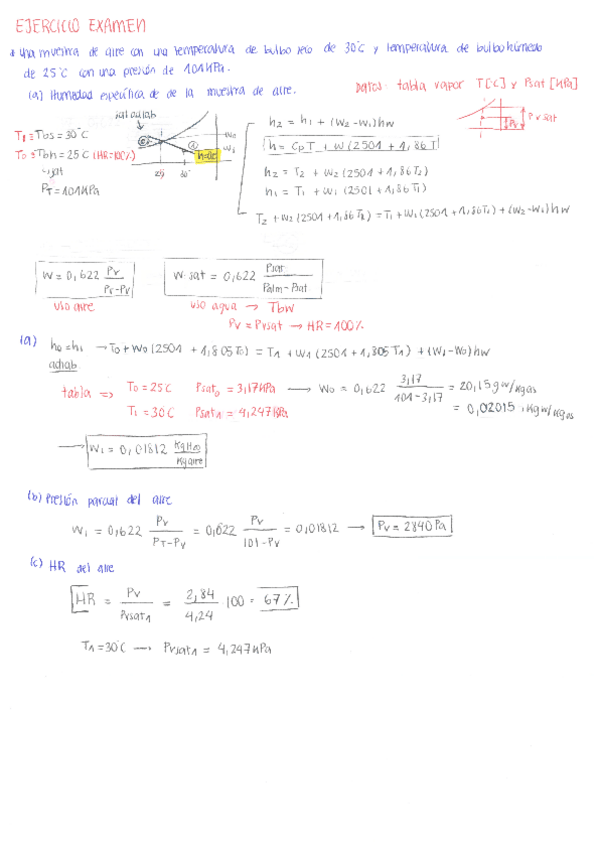 EJERCICIO EXAMEN
* una muestra de aire con una temperatura de bulbo seco de 30°C y temperatura de bulbo húmedo
de 25°C con una presión de 101 kPa.
(a) Humedad específica de de la muestra de aire.
Datos: tabla vapor T[C] y Psat [kPa]
sat adiab
T1 = Tbs = 30°C
T0 = Tbh = 25C (HR=100%)
↳sat
PT = 101 kPa
W0
W1
25
30°
h=cte
Pv
Pv sat
h2 = h1 + (W2-W1)hw
h = CpT + W(2501 + 1,86T)
h2 = T2 + W2(2501 + 1,86T2)
h1 = T1 + W1(2501 + 1,86T1)
T2 + W2(2501 + 1,86T2) = T1 + W1(2501 + 1,86T1) + (W2-W1)hw
W = 0,622 Pv / PT-Pv
W sat = 0,622 Psat / Patm-Psat
uso aire
uso agua → Tbw
Pv = Pvsat → HR = 100%
(a) h0 = h1 → T0 + W0(2501 + 1,805T0) = T1 + W1(2501 + 1,805T1) + (W1-W0)hw
adiab
tabla ⇒ T0 = 25C Psat0 = 3,17 kPa → W0 = 0,622 3,17 / 101-3,17 = 20,15 gw/kgas
T1 = 30C Psat1 = 4,247 kPa = 0,02015 kgw/kgas
→ W1 = 0,01812 KgH2O / Kg aire
(b) Presión parcial del aire
W1 = 0,622 Pv / PT-Pv = 0,622 Pv / 101-Pv = 0,01812 → Pv = 2840 Pa
(c) HR del aire
HR = Pv / Pvsat1 = 2,84 / 4,24 · 100 = 67%
T1 = 30°C → Pvsat1 = 4,247 kPa